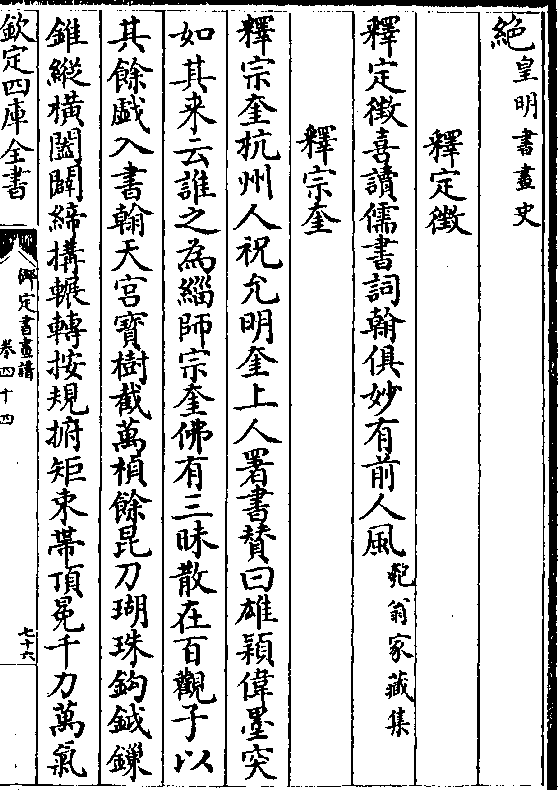 絶皇明書畫史
釋定徵
釋定徵喜讀儒書詞翰俱妙有前人風匏翁家藏集
釋宗奎
釋宗奎杭州人祝允明奎上人署書贊曰雄穎偉墨突
如其来云誰之為緇師宗奎佛有三昧散在百觀子以
其餘戱入書翰天宫寳樹截萬楨餘昆刀瑚珠鈎鉞鏁
錐縱横闔闢締搆輾轉按規捬矩束帶頂冕千力萬氣
欽定四庫全書
御定書畫譜
卷四十四
七十六